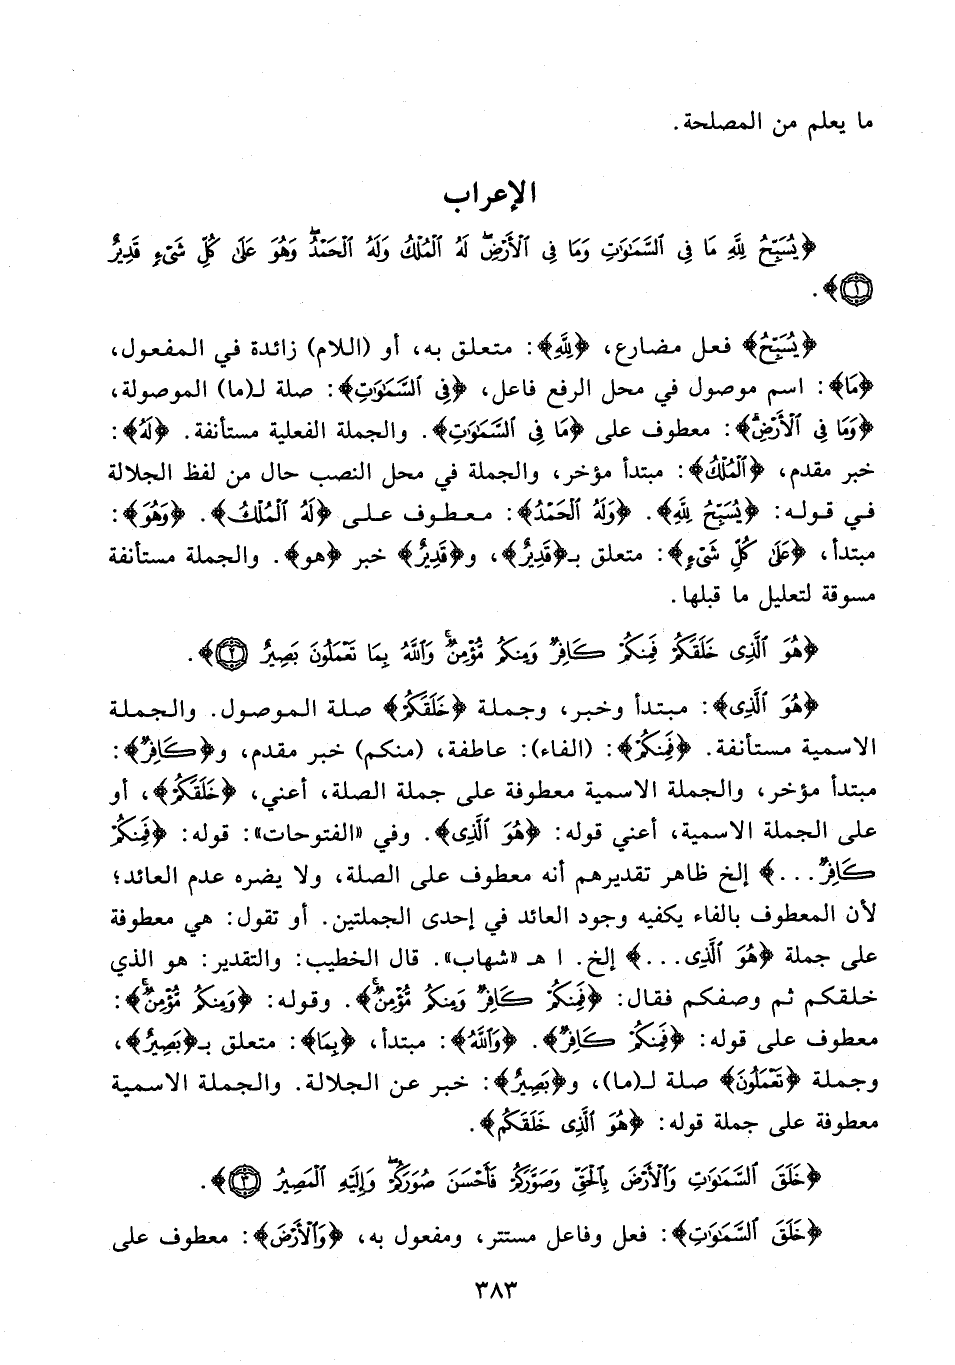 ما يعلم من المصلحة.
الإعراب
﴿يُسَبِّحُ لِلَّهِ مَا فِي السَّمَاوَاتِ وَمَا فِي الْأَرْضِ لَهُ الْمُلْكُ وَلَهُ الْحَمْدُ وَهُوَ عَلَىٰ كُلِّ شَيْءٍ قَدِيرٌ
١﴾.
﴿يُسَبِّحُ﴾ فعل مضارع، ﴿لِلَّهِ﴾: متعلق به، أو (اللام) زائدة في المفعول،
﴿مَا﴾: اسم موصول في محل الرفع فاعل، ﴿فِي السَّمَاوَاتِ﴾: صلة لـ(ما) الموصولة،
﴿وَمَا فِي الْأَرْضِ﴾: معطوف على ﴿مَا فِي السَّمَاوَاتِ﴾. والجملة الفعلية مستأنفة. ﴿لَهُ﴾:
خبر مقدم، ﴿الْمُلْكُ﴾: مبتدأ مؤخر، والجملة في محل النصب حال من لفظ الجلالة
في قوله: ﴿يُسَبِّحُ لِلَّهِ﴾. ﴿وَلَهُ الْحَمْدُ﴾: معطوف على ﴿لَهُ الْمُلْكُ﴾. ﴿وَهُوَ﴾:
مبتدأ، ﴿عَلَىٰ كُلِّ شَيْءٍ﴾: متعلق بـ﴿قَدِيرٌ﴾، و﴿قَدِيرٌ﴾ خبر ﴿هو﴾. والجملة مستأنفة
مسوقة لتعليل ما قبلها.
﴿هُوَ الَّذِي خَلَقَكُمْ فَمِنكُمْ كَافِرٌ وَمِنكُم مُّؤْمِنٌ وَاللَّهُ بِمَا تَعْمَلُونَ بَصِيرٌ ٢﴾.
﴿هُوَ الَّذِي﴾: مبتدأ وخبر، وجملة ﴿خَلَقَكُمْ﴾ صلة الموصول. والجملة
الاسمية مستأنفة. ﴿فَمِنكُمْ﴾: (الفاء): عاطفة، (منكم) خبر مقدم، و﴿كَافِرٌ﴾:
مبتدأ مؤخر، والجملة الاسمية معطوفة على جملة الصلة، أعني، ﴿خَلَقَكُمْ﴾، أو
على الجملة الاسمية، أعني قوله: ﴿هُوَ الَّذِي﴾. وفي «الفتوحات»: قوله: ﴿فَمِنكُمْ
كَافِرٌ...﴾ إلخ ظاهر تقديرهم أنه معطوف على الصلة، ولا يضره عدم العائد؛
لأن المعطوف بالفاء يكفيه وجود العائد في إحدى الجملتين. أو تقول: هي معطوفة
على جملة ﴿هُوَ الَّذِي...﴾ إلخ. ا هـ «شهاب». قال الخطيب: والتقدير: هو الذي
خلقكم ثم وصفكم فقال: ﴿فَمِنكُمْ كَافِرٌ وَمِنكُم مُّؤْمِنٌ﴾. وقوله: ﴿وَمِنكُم مُّؤْمِنٌ﴾:
معطوف على قوله: ﴿فَمِنكُمْ كَافِرٌ﴾. ﴿وَاللَّهُ﴾: مبتدأ، ﴿بِمَا﴾: متعلق بـ﴿بَصِيرٌ﴾،
وجملة ﴿تَعْمَلُونَ﴾ صلة لـ(ما)، و﴿بَصِيرٌ﴾: خبر عن الجلالة. والجملة الاسمية
معطوفة على جملة قوله: ﴿هُوَ الَّذِي خَلَقَكُم﴾.
﴿خَلَقَ السَّمَاوَاتِ وَالْأَرْضَ بِالْحَقِّ وَصَوَّرَكُمْ فَأَحْسَنَ صُوَرَكُمْ وَإِلَيْهِ الْمَصِيرُ ٣﴾.
﴿خَلَقَ السَّمَاوَاتِ﴾: فعل وفاعل مستتر، ومفعول به، ﴿وَالْأَرْضَ﴾: معطوف على
٣٨٣